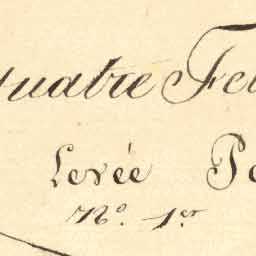 quatre Fe
Levée Po
N.º 1er